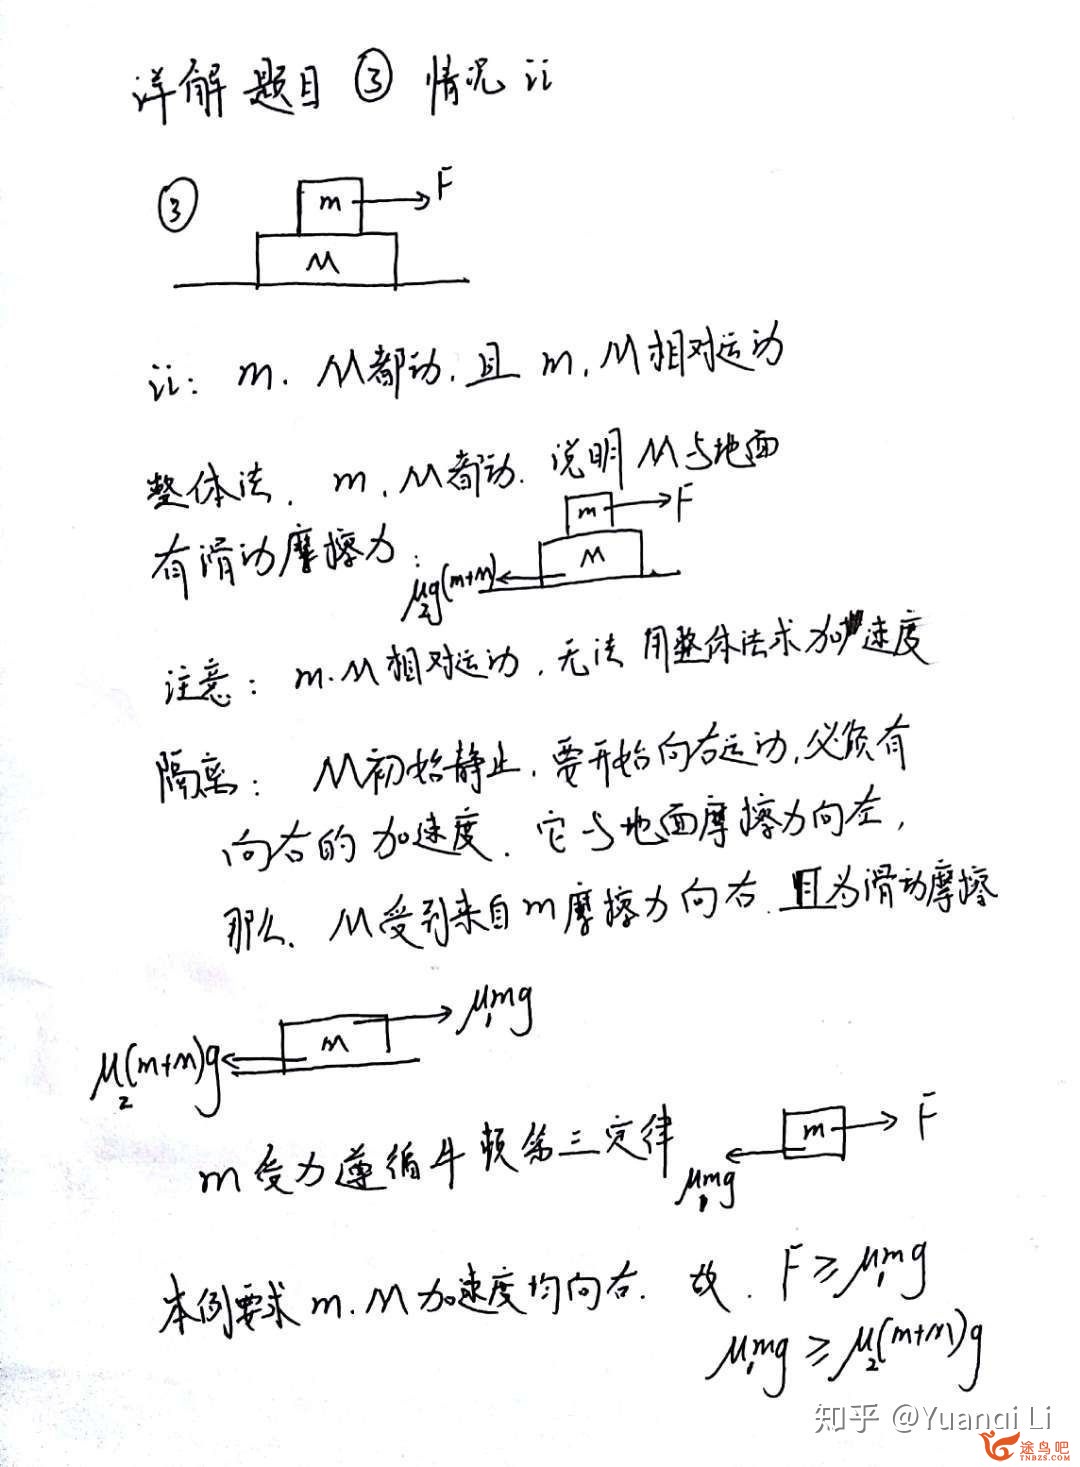 详解题目③情况ii
③
m
F
M
ii: m. M都动.且 m. M相对运动
整体法. m. M都动. 说明M与地面
有滑动摩擦力:
m
F
M
μ₂g(m+M)
注意: m.M相对运动,无法用整体法求加速度
隔离: M初始静止,要开始向右运动,必须有
向右的加速度. 它与地面摩擦力向左,
那么. M受到来自m摩擦力向右.且为滑动摩擦
μ₁mg
M
μ₂(m+M)g
m受力遵循牛顿第三定律
m
F
μ₁mg
本例要求m.M加速度均向右. 故. F≥μ₁mg
μ₁mg≥μ₂(m+M)g
知乎 @Yuanqi Li
途鸟吧
TNBZS.COM